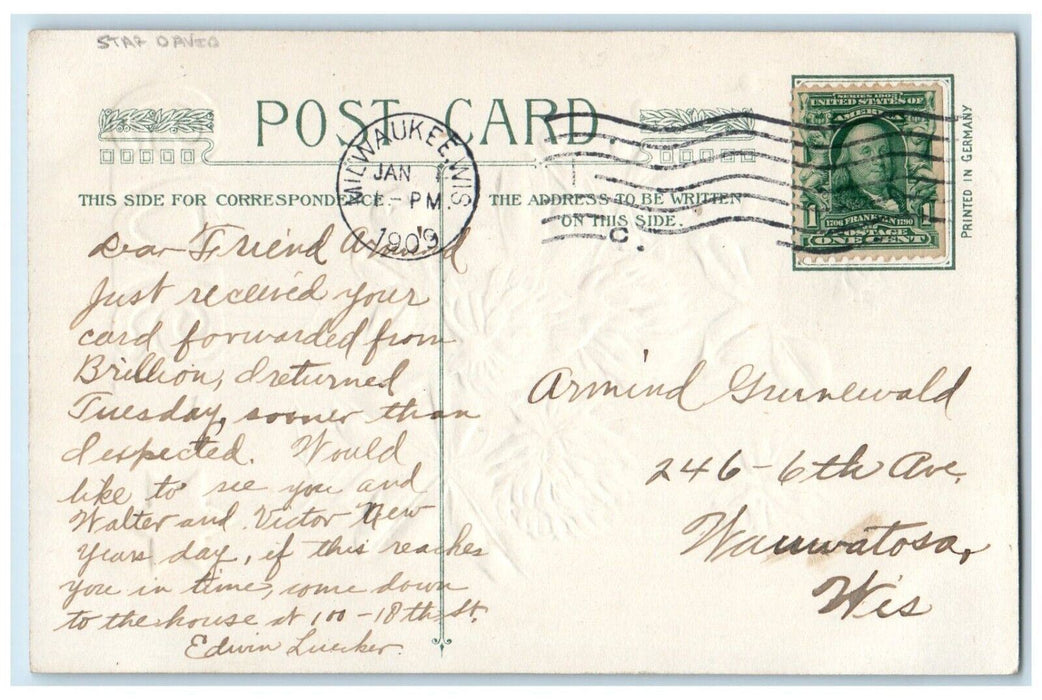 STAR DAVID
POST CARD
MILWAUKEE, WIS.
JAN 1
- PM
1909
C.
SERIES 1902
UNITED STATES OF
AMERICA
1
1706 FRANKLIN 1790
POSTAGE
ONE CENT
PRINTED IN GERMANY
THIS SIDE FOR CORRESPONDENCE
THE ADDRESS TO BE WRITTEN
ON THIS SIDE
Dear Friend
Just received your
card forwarded from
Brillion, I returned
Tuesday, sooner than
I expected. Would
like to see you and
Walter and Victor New
Years day, if this reaches
you in time, come down
to the house at 100-18th St.
Edwin Luecker
Armind Grunewald
246-6th Ave.
Wauwatosa,
Wis